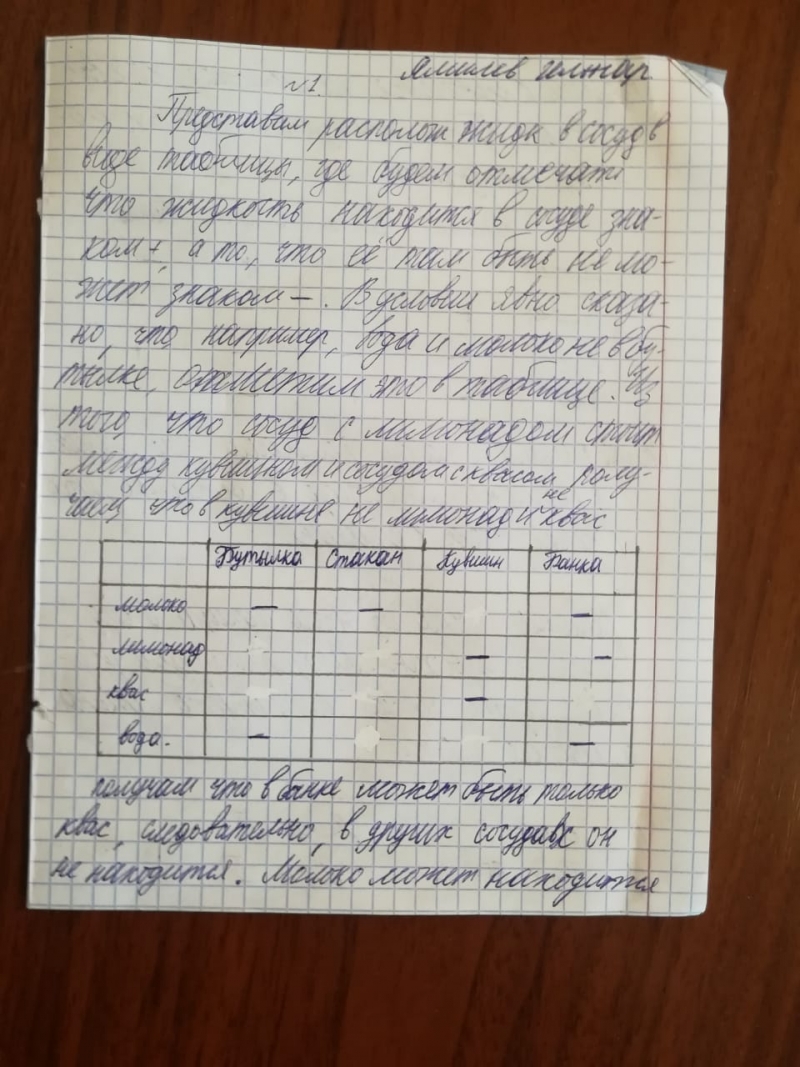 №1.
Представим располож жыдк в сосуд в
виде таблицы, где будем отмечать
что жидкость находится в сосуде зна-
ком +, а то, что её там быть не мо-
жет знаком —. В условии явно сказа-
но, что например, вода и молоко не в бу-
тылке, отметим это в таблице. Из
того, что сосуд с лимонадом стоит
между кувшином и сосудом с квасом, полу-
чим, что в кувшине не лимонад и не квас
Бутылка Стакан Кувшин Банка
молоко — — —
лимонад — —
квас —
вода. — —
получам что в банке может быть только
квас, следовательно, в других сосудах он
не находится. Молоко может находится